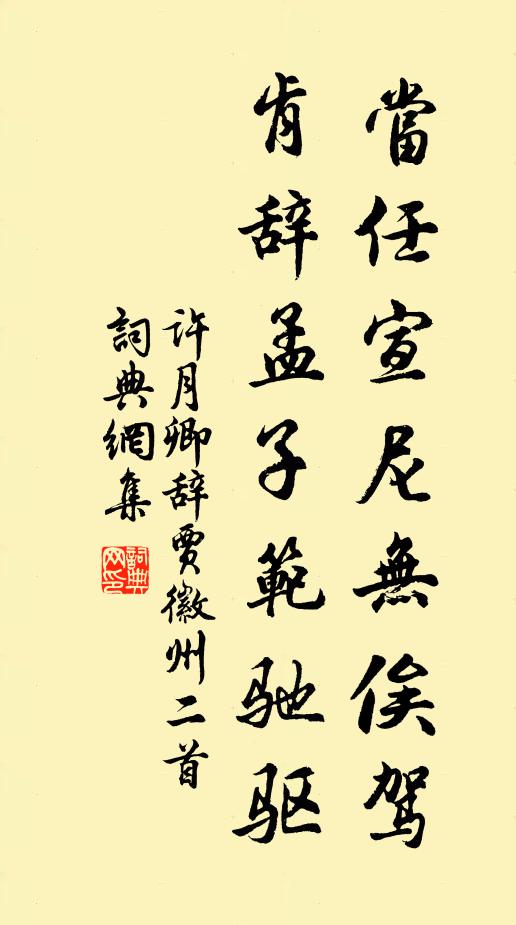 當任宣尼無俟駕
肯辞孟子範驰驱
许月卿辞贾徽州二首
詞典網集
詞典网印